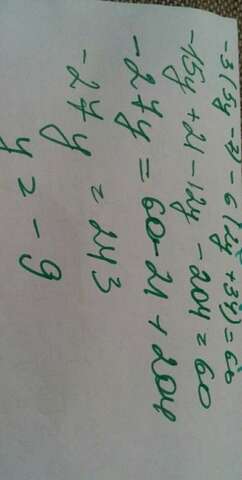 -3(5y - 7) - 6(2y + 34) = 60
-15y + 21 - 12y - 204 = 60
-27y = 60 - 21 + 204
-27y = 243
y = -9